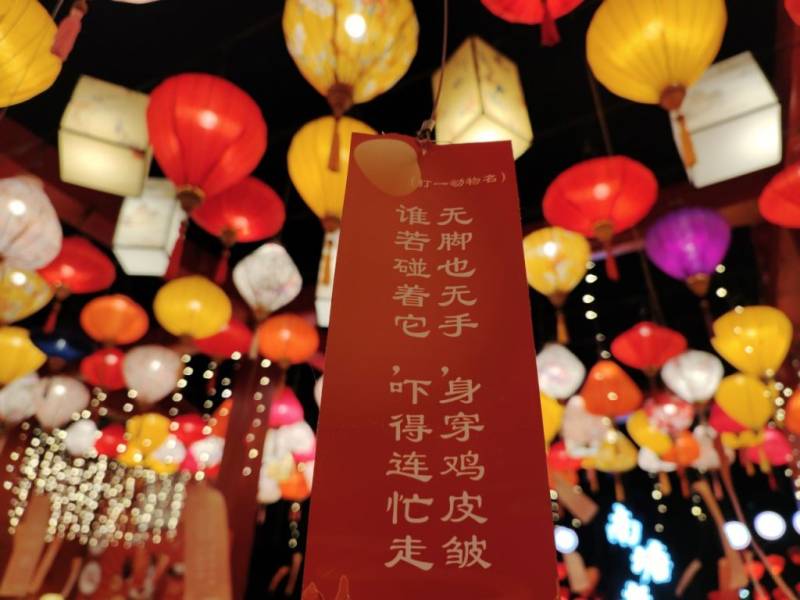 (打一动物名)
无脚也无手，身穿鸡皮皱
谁若碰着它，吓得连忙走
南塘